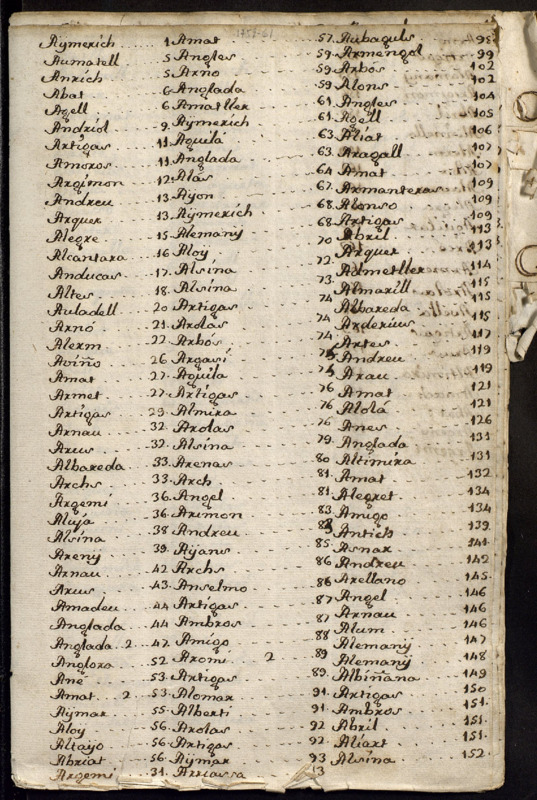 Aymerich 1
Aumatell 5
Anrich 5
Abat 6
Agell 6
Andriol 9
Artigas 11
Amoros 11
Argimon 12
Andreu 13
Arquer 13
Alegre 15
Alcantara 16
Anducas 17
Altes 18
Auladell 20
Arnó 21
Alerm 22
Aviño 26
Amat 27
Armet 27
Artigas 29
Arnau 32
Arus 32
Albareda 33
Archs 33
Argemi 36
Aluja 36
Alsina 38
Areny 39
Arnau 42
Arus 43
Amadeu 44
Anglada 44
Anglada 2 47
Anglora 52
Ané 53
Amat 2 53
Aymar 55
Aloy 56
Altayo 56
Abriat 56
Argemi 31
Amat 57
Angles 59
Arno 59
Anglada 59
Amatller 61
Aymerich 61
Aguila 63
Anglada 63
Alás 64
Ayon 67
Aymerich 68
Alemany 68
Aloy 70
Alsina 72
Alsina 73
Artigas 74
Arolas 74
Arbós 74
Argasi 75
Aguila 75
Artigas 76
Almira 76
Arolas 76
Alsina 79
Arenas 80
Arch 81
Angel 81
Arimon 83
Andreu 83
Ayans 85
Archs 86
Anselmo 86
Artigas 87
Ambros 87
Amigo 88
Aromi 2 89
Artigas 89
Alomar 91
Alberti 91
Arolas 92
Artigas 92
Aymar 93
Arcassa 13
Aubaguls 95
Armengol 99
Arbos 102
Alons 102
Angles 104
Agell 105
Aliat 106
Aragall 107
Amat 107
Armanteras 109
Alonso 109
Artigas 109
Abril 113
Arquer 113
Admetller 114
Almarill 115
Albareda 115
Arderius 115
Artes 117
Andreu 119
Arau 119
Amat 121
Alolá 121
Anes 126
Anglada 131
Altimira 131
Amat 132
Alegret 134
Amigo 134
Antich 139
Asnar 141
Andreu 142
Arellano 145
Angel 146
Arnau 146
Alum 146
Alemany 147
Alemany 148
Albiñana 149
Artigas 150
Ambros 151
Abril 151
Aliart 151
Alsina 152